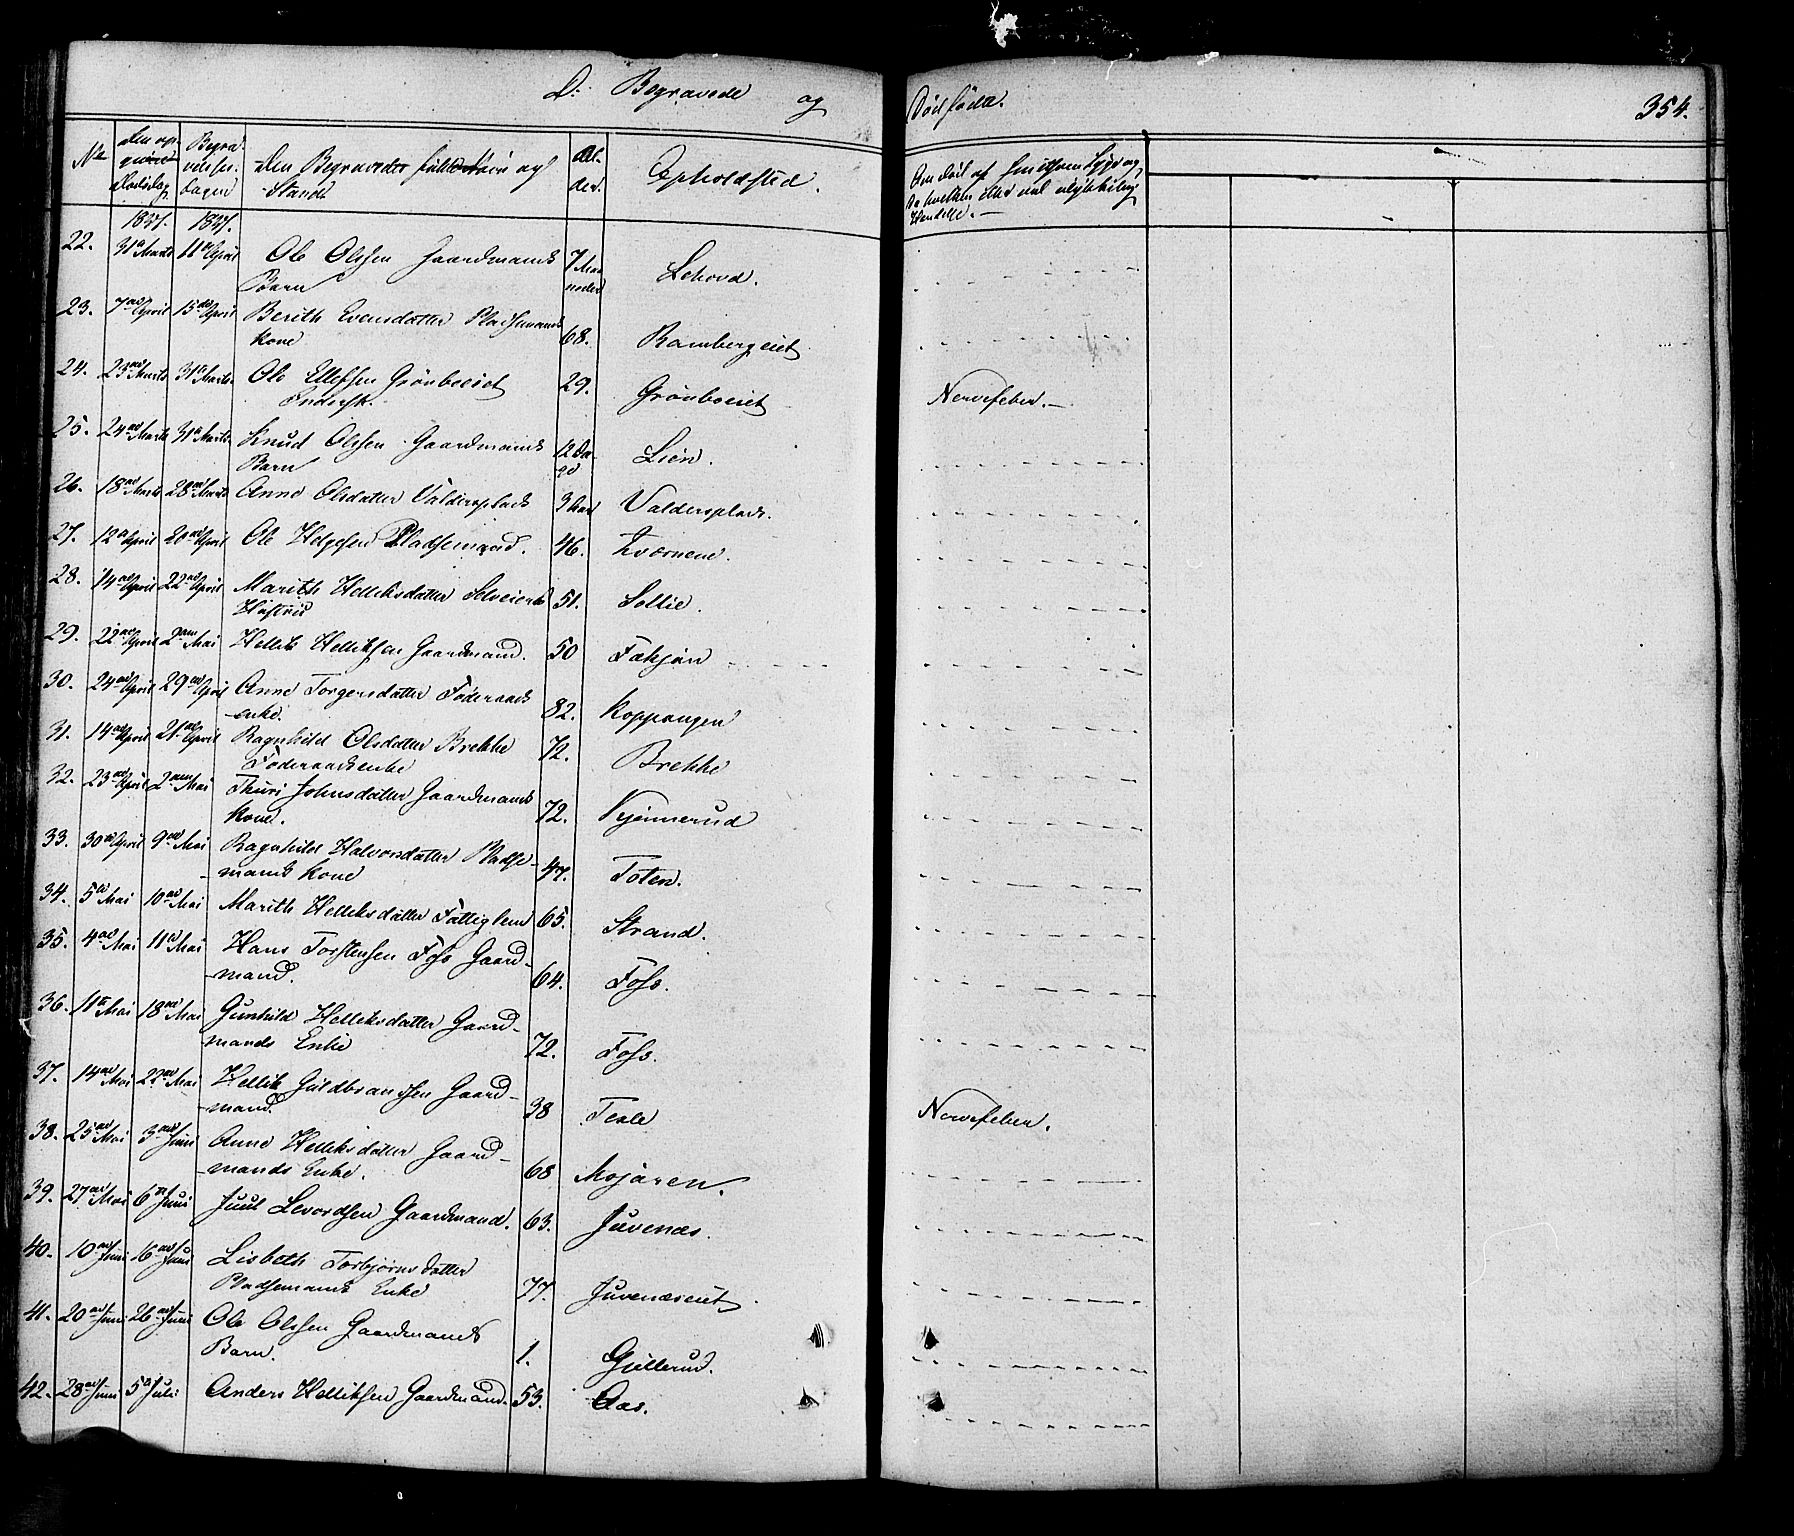 D: Begravede og Dødfødte. 354.
No Den opgivne Dødsdag Begravelsesdagen Den Begravedes fulde Navn og Stand Alder. Opholdsted. Om Død af smitsom Syge og
Hændelse.
1837. 1837.
22. 31te Marts 11te April Ole Olssen Gaardmands 7 Maa-
Barn neder Lehovd.
23. 7de April 15de April Berith Evensdatter Pladsemands
Kone 68. Rambergeiet
24. 23de Marts 31te Marts Ole Ellefsen Grønboeiet 29. Grønboeiet Nervefeber.
Indersk.
25. 24de Marts 31te Marts Knud Olssen Gaardmands 12 Da-
Barn ge Lien.
26. 18de Marts 28de Marts Anne Olsdatter Valdersplads 3 Aar Valdersplads.
27. 12te April 20de April Ole Helgesen Pladsemand. 46. Kværnene.
28. 14de April 22de April Marith Helleksdatter Selveiers 51. Sollie.
Hustrue
29. 22de April 2den Mai Hellik Helliksen Gaardmand. 50
30. 24de April 29de April Anne Torgersdatter Føderaads
enke. 82. Koppangen
31. 14de April 21de April Ragnhild Olsdatter Brekke 72. Brekke
Føderaadsenke
32. 23de April 2den Mai Thuri Johnsdatter Gaardmands
Kone. 72. Kjennerud
33. 30te April 9de Mai Ragnhild Halvorsdatter Pladse-
mands Kone 47. Toten.
34. 5te Mai 10de Mai Marith Helleksdatter Fattiglem 65. Strand.
35. 4de Mai 11te Mai Hans Torstensen Foss Gaard-
mand. 64. Foss.
36. 11te Mai 18de Mai Gunhild Helleksdatter Gaard-
mands Enke 72. Foss.
37. 14de Mai 22de Mai Hellik Guldbrandsen Gaard-
mand. 38 Tesle Nervefeber.
38. 25de Mai 3die Juni Anne Helleksdatter Gaard-
mands Enke. 68 Mojaren.
39. 27de Mai 6te Juni Juul Levordsen Gaardmand. 63. Juvenæs.
40. 10de Juni 16de Juni Lisbeth Torbjørnsdatter
Pladsemands Enke 77. Juvenæseiet.
41. 20de Juni 26de Juni Ole Olssen Gaardmands
Barn. 1. Gullerud.
42. 28de Juni 5te Juli Anders Helliksen Gaardmand. 53. Aas.